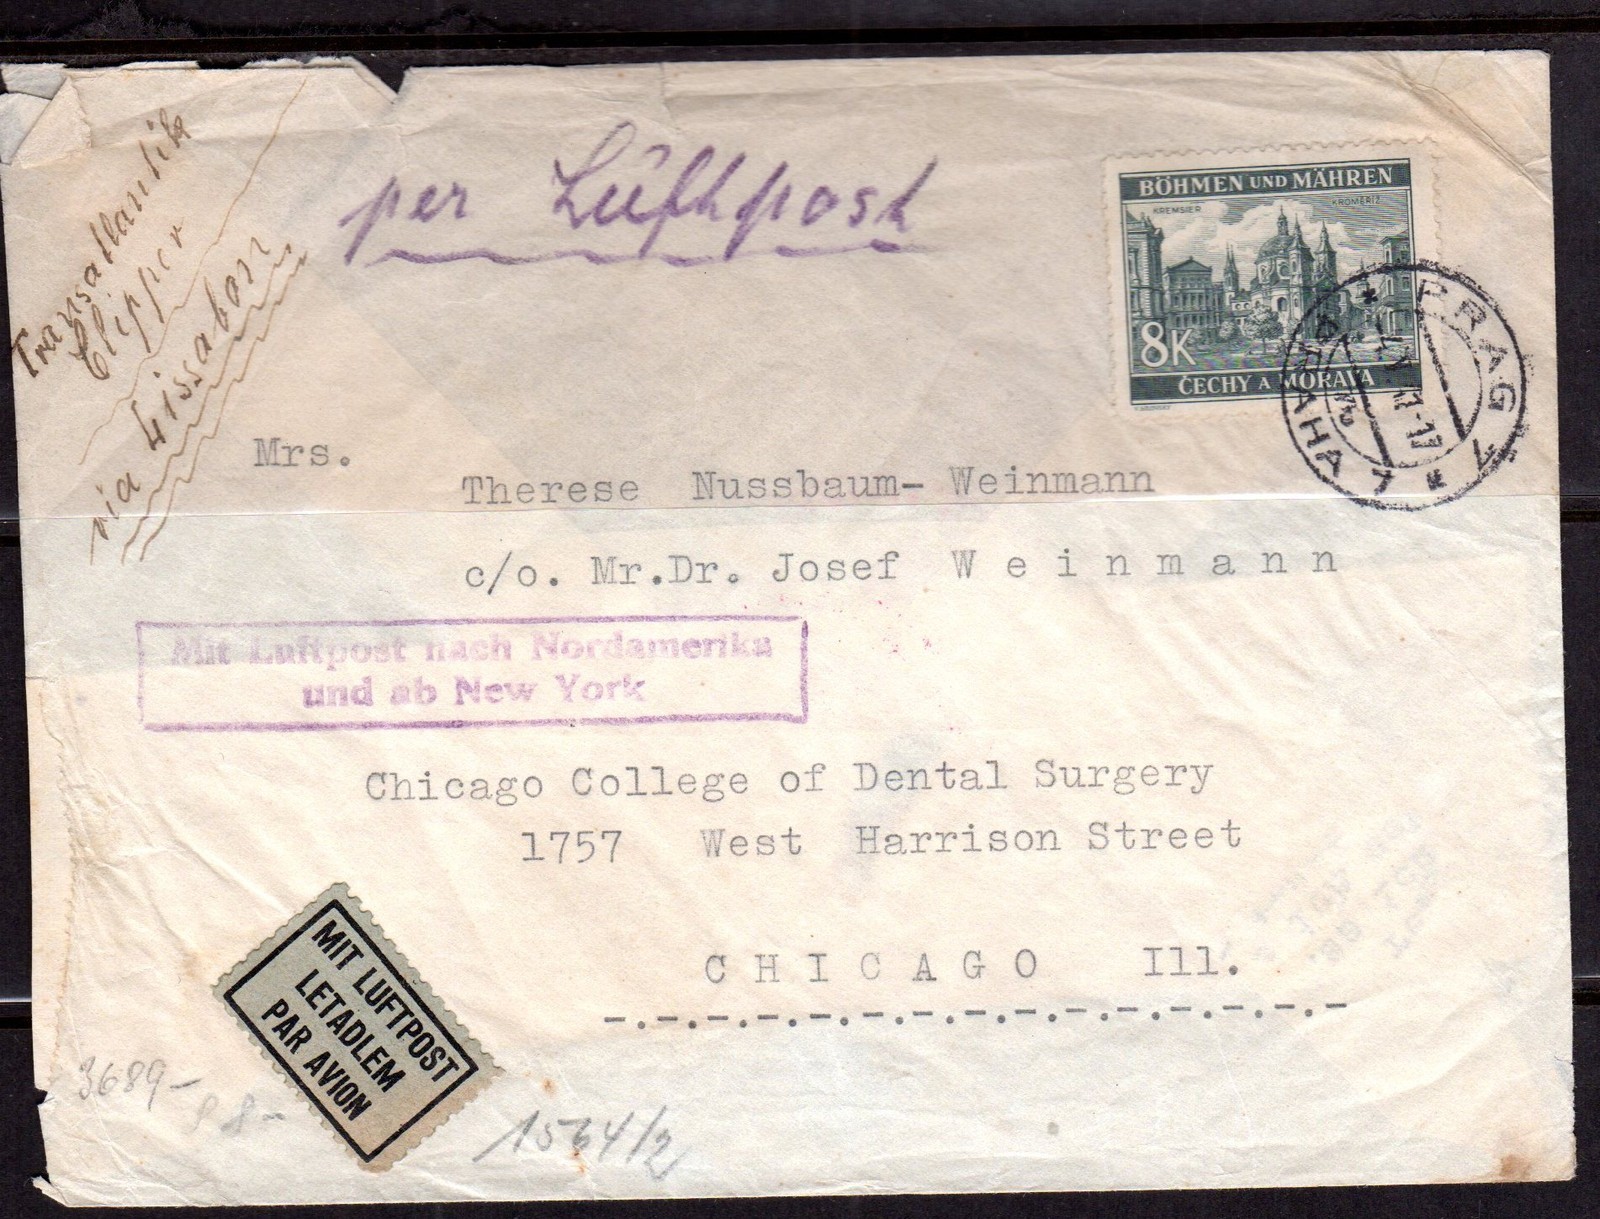 Transatlantik
Clipper
via Lissabon
per Luftpost
BÖHMEN UND MÄHREN
KREMSIER
KROMĚŘÍŽ
8K
ČECHY A MORAVA
PRAG 1
PRAHA 1
Mrs.
Therese Nussbaum- Weinmann
c/o. Mr.Dr. Josef W e i n m a n n
Mit Luftpost nach Nordamerika
und ab New York
Chicago College of Dental Surgery
1757 West Harrison Street
C H I C A G O Ill.
MIT LUFTPOST
LETADLEM
PAR AVION
3689-
8-
1564/2